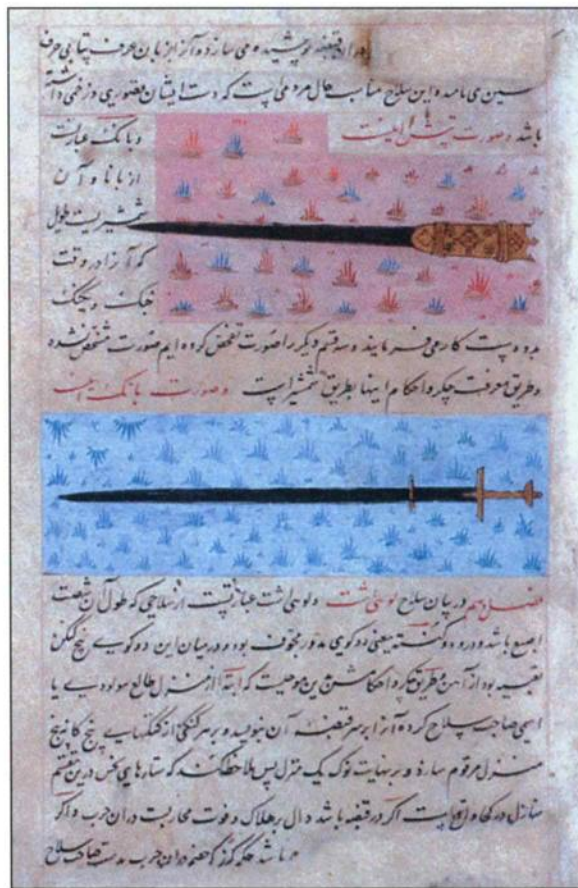 در ان قبضه پوشیده می سازد و آنرا بزبان عرف پتابی حرف
سین می نامند و این سلاح مناسب حال مردمی است که دست ایشان قصوری و زخمی داشته
باشد و صورت اینست
و بانک عبارت
از بانا و آن
شمشیریست طویل
که آنرا در وقت
جنک
بدو دست کار می فرمایند و سه قسم دیگر را صورت تفحص کرده ایم صورت مشخص نشده
و طریق معرفت چکر و احکام اینها بطریق شمشیر است و صورت بانک اینست
فصل دهم در بیان سلاح و عبارتست از سلاحی که طول آن شصت
اصبع باشد و در و دو کته یعنی دو کوی مدور مجوف بود و در میان این دو کوی پنج کنکن
تعبیه بود از آهن و طریق چکر و احکامش بدین موجبست که ابتدا از منزل طالع مولود یا
اسم صاحب سلاح کرده آنرا بر سر قبضه آن بنویسد و بر هر کنکنی از کنکنهای پنج کانه پنج
منزل مرقوم سازد و بر نهایت نوک یک منزل پس ملاحظه کند که ستارهای نحس درین
منازل در کجا واقع است اگر در قبضه باشد دال بر هلاک و فوت محاربست در ان حرب و اگر
باشد حکم کند که خصم در ان حرب بدست صاحب سلاح